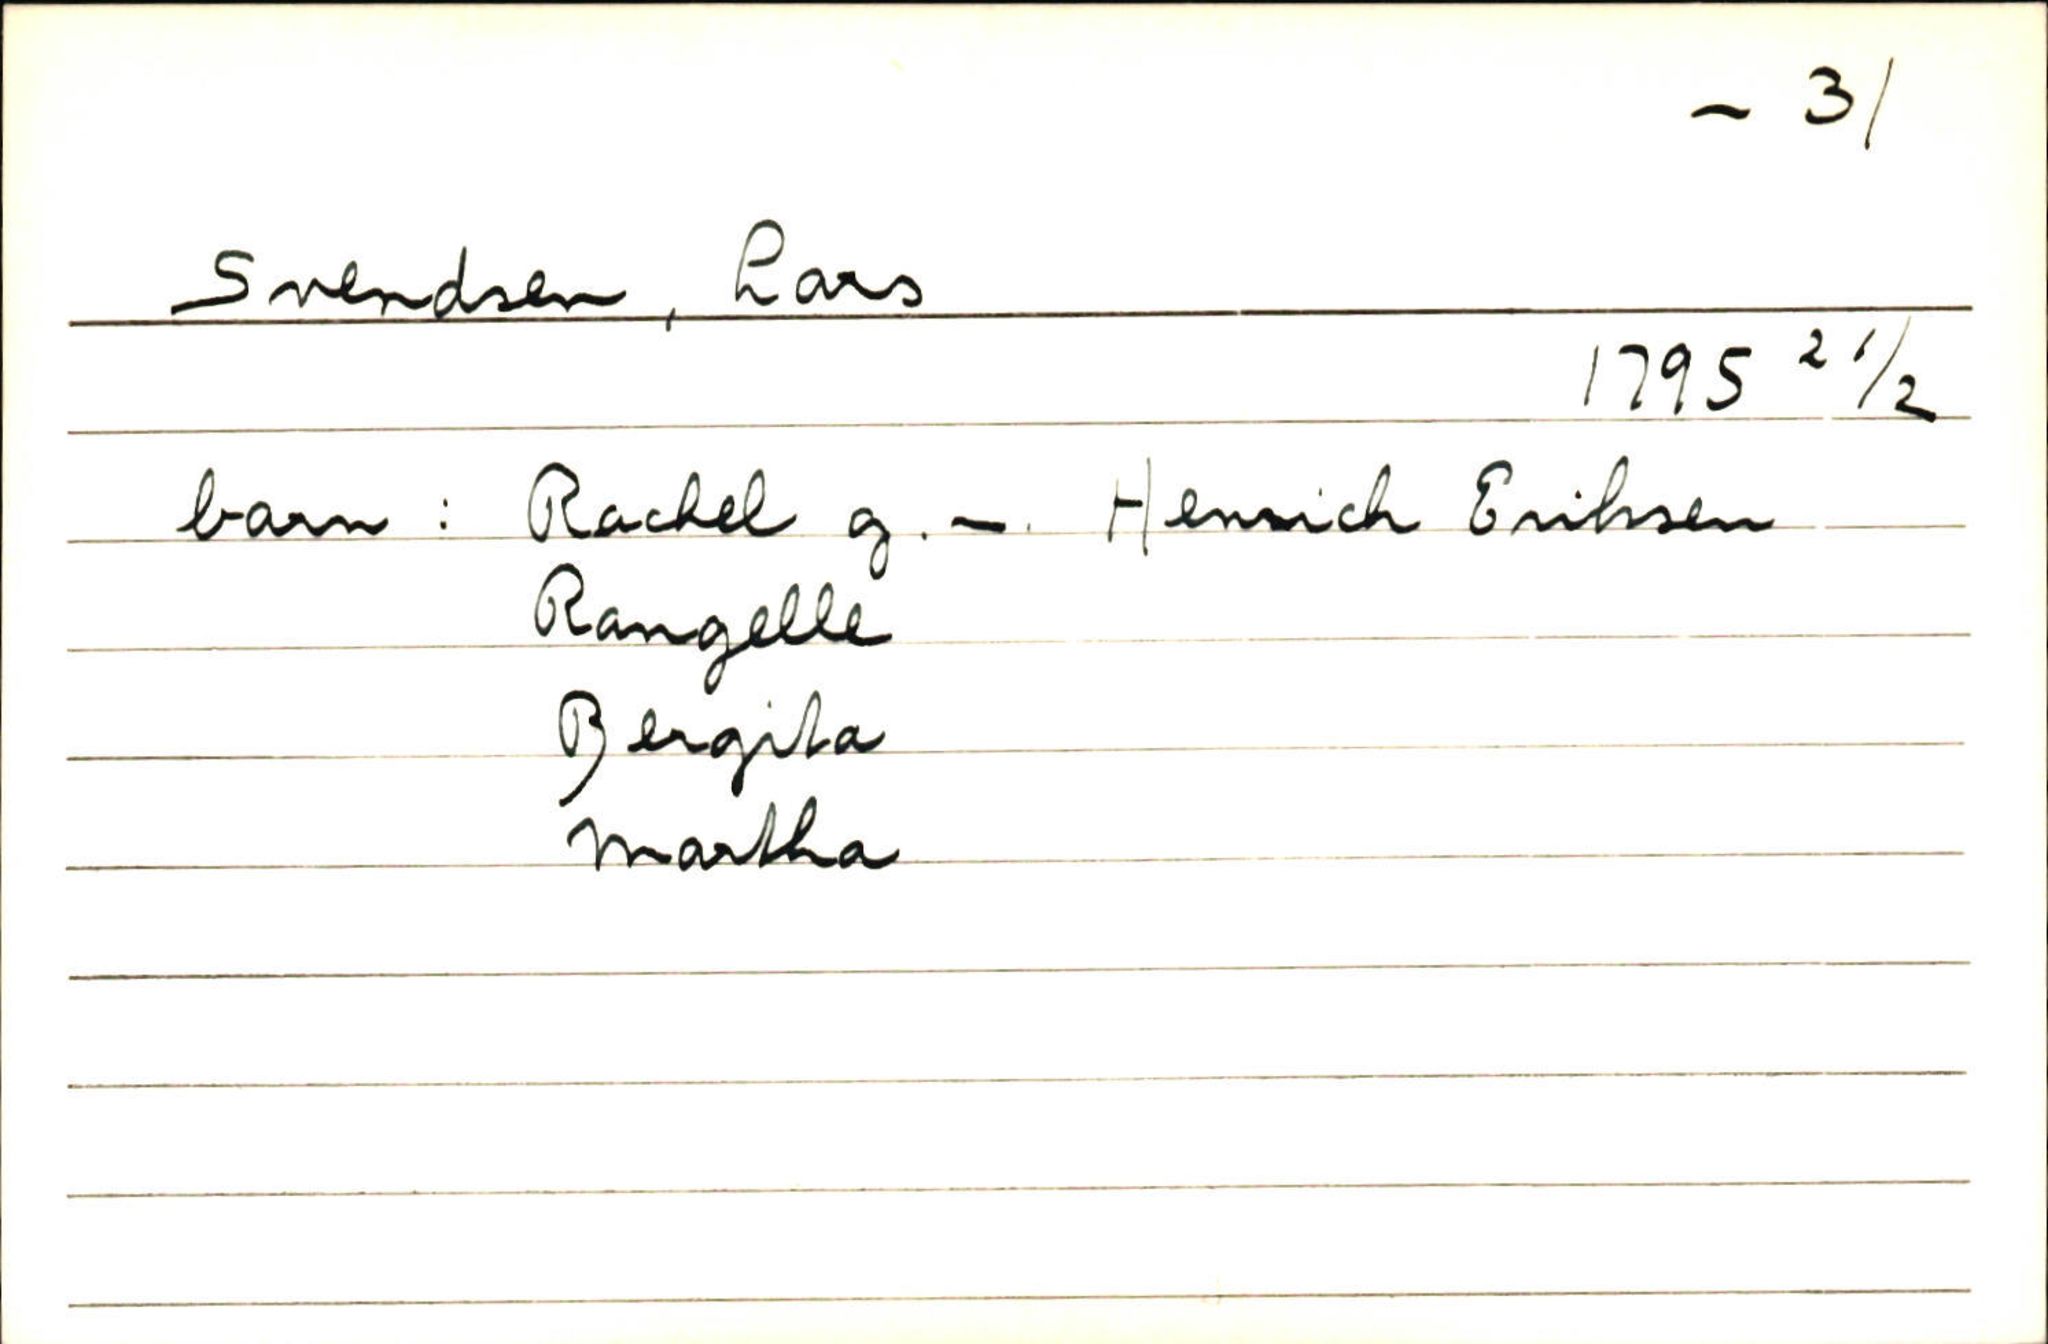 ~ 31
Svendsen, Lars
1795 21/2
barn : Rachel g. ~. Henrich Eriksen
Rangelle
Bergita
Martha